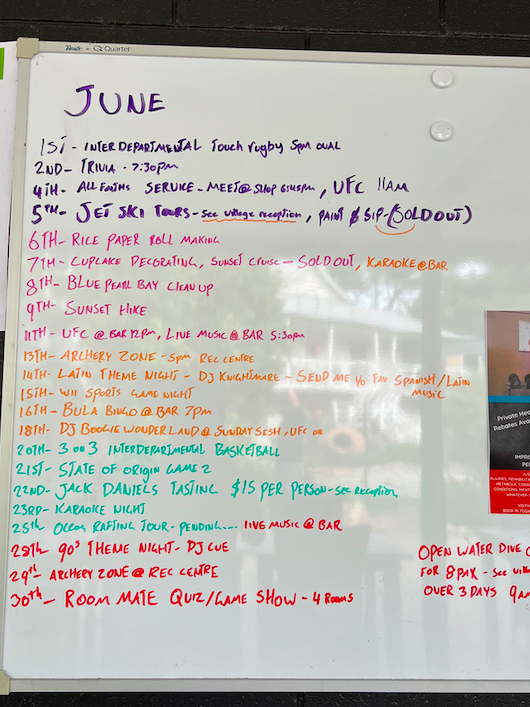 Quartet
JUNE
1ST - INTERDEPARTMENTAL Touch rugby 5pm OVAL
2ND - TRIVIA - 7:30pm
4TH - ALL FAITHS SERVICE - MEET@SHOP 6:45pm, UFC 11AM
5TH - JET SKI TOURS - See village reception, PAINT & SIP - (SOLD OUT)
6TH - RICE PAPER ROLL MAKING
7TH - CUPCAKE DECORATING, SUNSET CRUISE - SOLD OUT, KARAOKE@BAR
8TH - BLUE PEARL BAY CLEAN UP
9TH - SUNSET HIKE
11TH - UFC @ BAR 12pm, LIVE MUSIC @ BAR 5:30pm
13TH - ARCHERY ZONE - 5pm REC CENTRE
14TH - LATIN THEME NIGHT - DJ KNIGHTMARE - SEND ME YO FAV SPANISH/LATIN
MUSIC
15TH - WII SPORTS GAME NIGHT
16TH - BULA BINGO @ BAR 7pm
18TH - DJ BOOGIE WONDERLAND @ SUNDAY SESH, UFC ON
20TH - 3 ON 3 INTERDEPARTMENTAL BASKETBALL
21ST - STATE OF ORIGIN GAME 2
22ND - JACK DANIELS TASTING $15 PER PERSON - SEE RECEPTION
23RD - KARAOKE NIGHT
25th OCEAN RAFTING TOUR - PENDING.... LIVE MUSIC @ BAR
28th 90s THEME NIGHT - DJ CUE
29th - ARCHERY ZONE @ REC CENTRE
30th - ROOM MATE QUIZ/GAME SHOW - 4 ROOMS
OPEN WATER DIVE
FOR 8 PAX - See
OVER 3 DAYS 9am
Private Hea
Rebates Ava
IMPRO